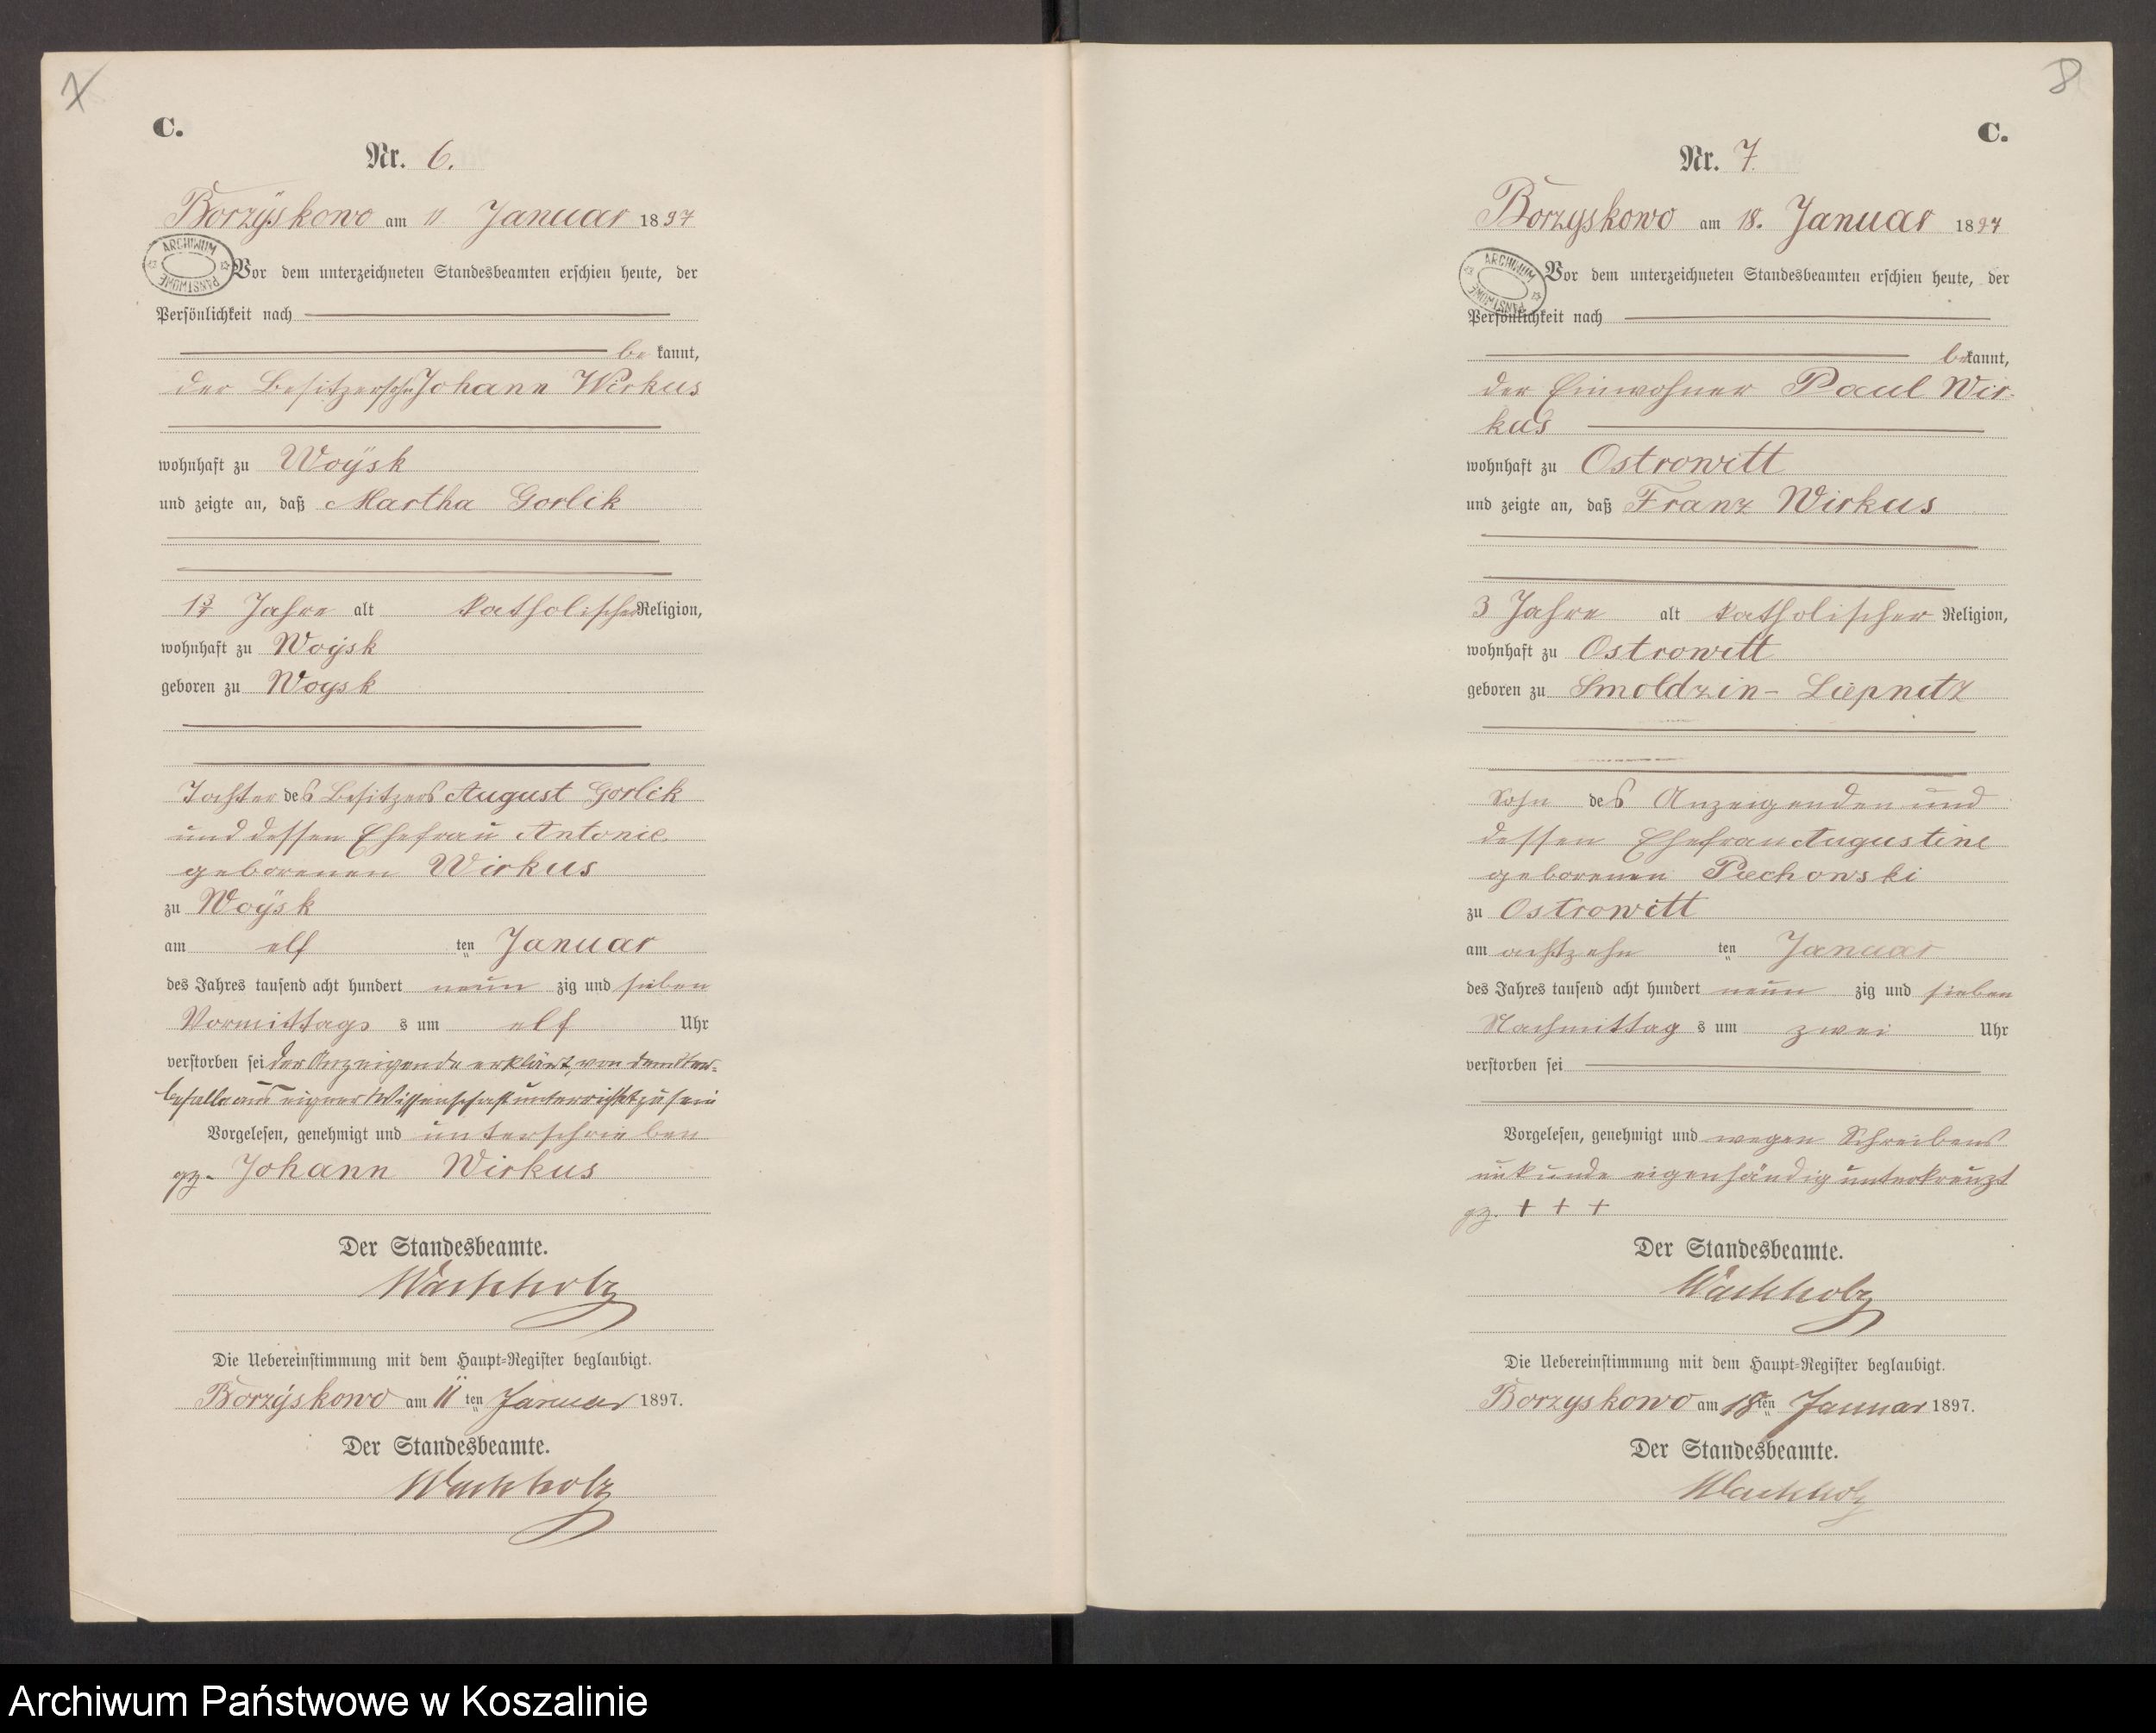 7
C.
Nr. 6.
Borzÿskowo am 11 Januar 1897
ARCHIWUM PAŃSTWOWE
Vor dem unterzeichneten Standesbeamten erschien heute, der
Persönlichkeit nach
be kannt,
der Besitzersohn Johann Wirkus
wohnhaft zu Woÿsk
und zeigte an, daß Martha Gorlik
1¾ Jahre alt katholischer Religion,
wohnhaft zu Woÿsk
geboren zu Woysk
Tochter des Besitzers August Gorlik
und dessen Ehefrau Antonie
geborenen Wirkus
zu Woÿsk
am elf ten Januar
des Jahres tausend acht hundert neun zig und sieben
Vormittags s um elf Uhr
verstorben sei der Anzeigende erklärt, von dem Ster-
befalle aus eigner Wissenschaft unterrichtet zu sein
Vorgelesen, genehmigt und unterschrieben
gz. Johann Wirkus
Der Standesbeamte.
Wachholz
Die Uebereinstimmung mit dem Haupt-Register beglaubigt.
Borzÿskowo am 11 ten Januar 1897.
Der Standesbeamte.
Wachholz
8
C.
Nr. 7.
Borzyskowo am 18. Januar 1897
ARCHIWUM PAŃSTWOWE
Vor dem unterzeichneten Standesbeamten erschien heute, der
Persönlichkeit nach
bekannt,
der Einwohner Paul Wir-
kus
wohnhaft zu Ostrowitt
und zeigte an, daß Franz Wirkus
3 Jahre alt katholischer Religion,
wohnhaft zu Ostrowitt
geboren zu Smoldzin - Liepnitz
Sohn des Anzeigenden und
dessen Ehefrau Augustine
geborenen Piechowski
zu Ostrowitt
am achtzehn ten Januar
des Jahres tausend acht hundert neun zig und sieben
Nachmittag s um zwei Uhr
verstorben sei
Vorgelesen, genehmigt und wegen Schreibens
unkunde eigenhändig unterkreuzt
gz. + + +
Der Standesbeamte.
Wachholz
Die Uebereinstimmung mit dem Haupt-Register beglaubigt.
Borzyskowo am 18 ten Januar 1897.
Der Standesbeamte.
Wachholz
Archiwum Państwowe w Koszalinie